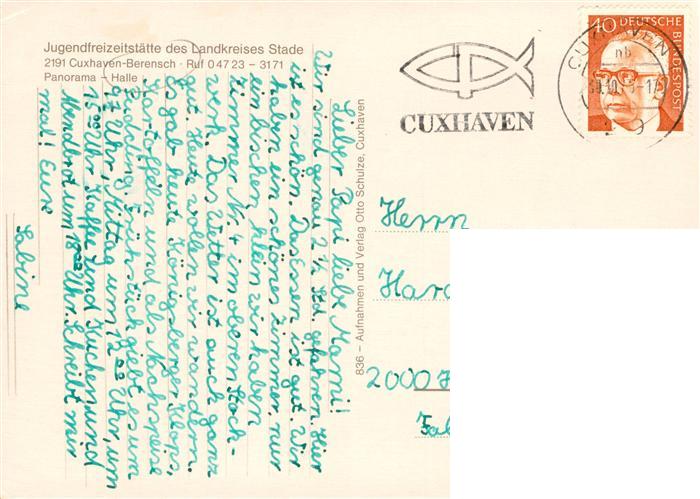 Jugendfreizeitstätte des Landkreises Stade
2191 Cuxhaven-Berensch · Ruf 0 47 23 – 3171
Panorama – Halle
Lieber Papi liebe Mami!
Wir sind genau 2 ½ Std. gefahren. Hier
ist es schön. Das Essen ist gut. Wir
haben ein schönes Zimmer, nur
ein bischen klein. Wir haben
Zimmer Nr. 4 im oberen Stock-
werk. Das Wetter ist auch ganz
gut. Heute wollen wir wandern.
Es gab heute Königsberger Klops,
Kartoffeln und als Nachspeise
Pudding. Frühstück giebt es um
Uhr, Mittag um 12 Uhr, um
15 Uhr Kaffe und Kuchen und
Abendbrot um 18 Uhr. Schreibt mir
mal! Eure
Sabine
836 – Aufnahmen und Verlag Otto Schulze, Cuxhaven
CUXHAVEN
CUXHAVEN
40 DEUTSCHE BUNDESPOST
Herrn
Har
2000